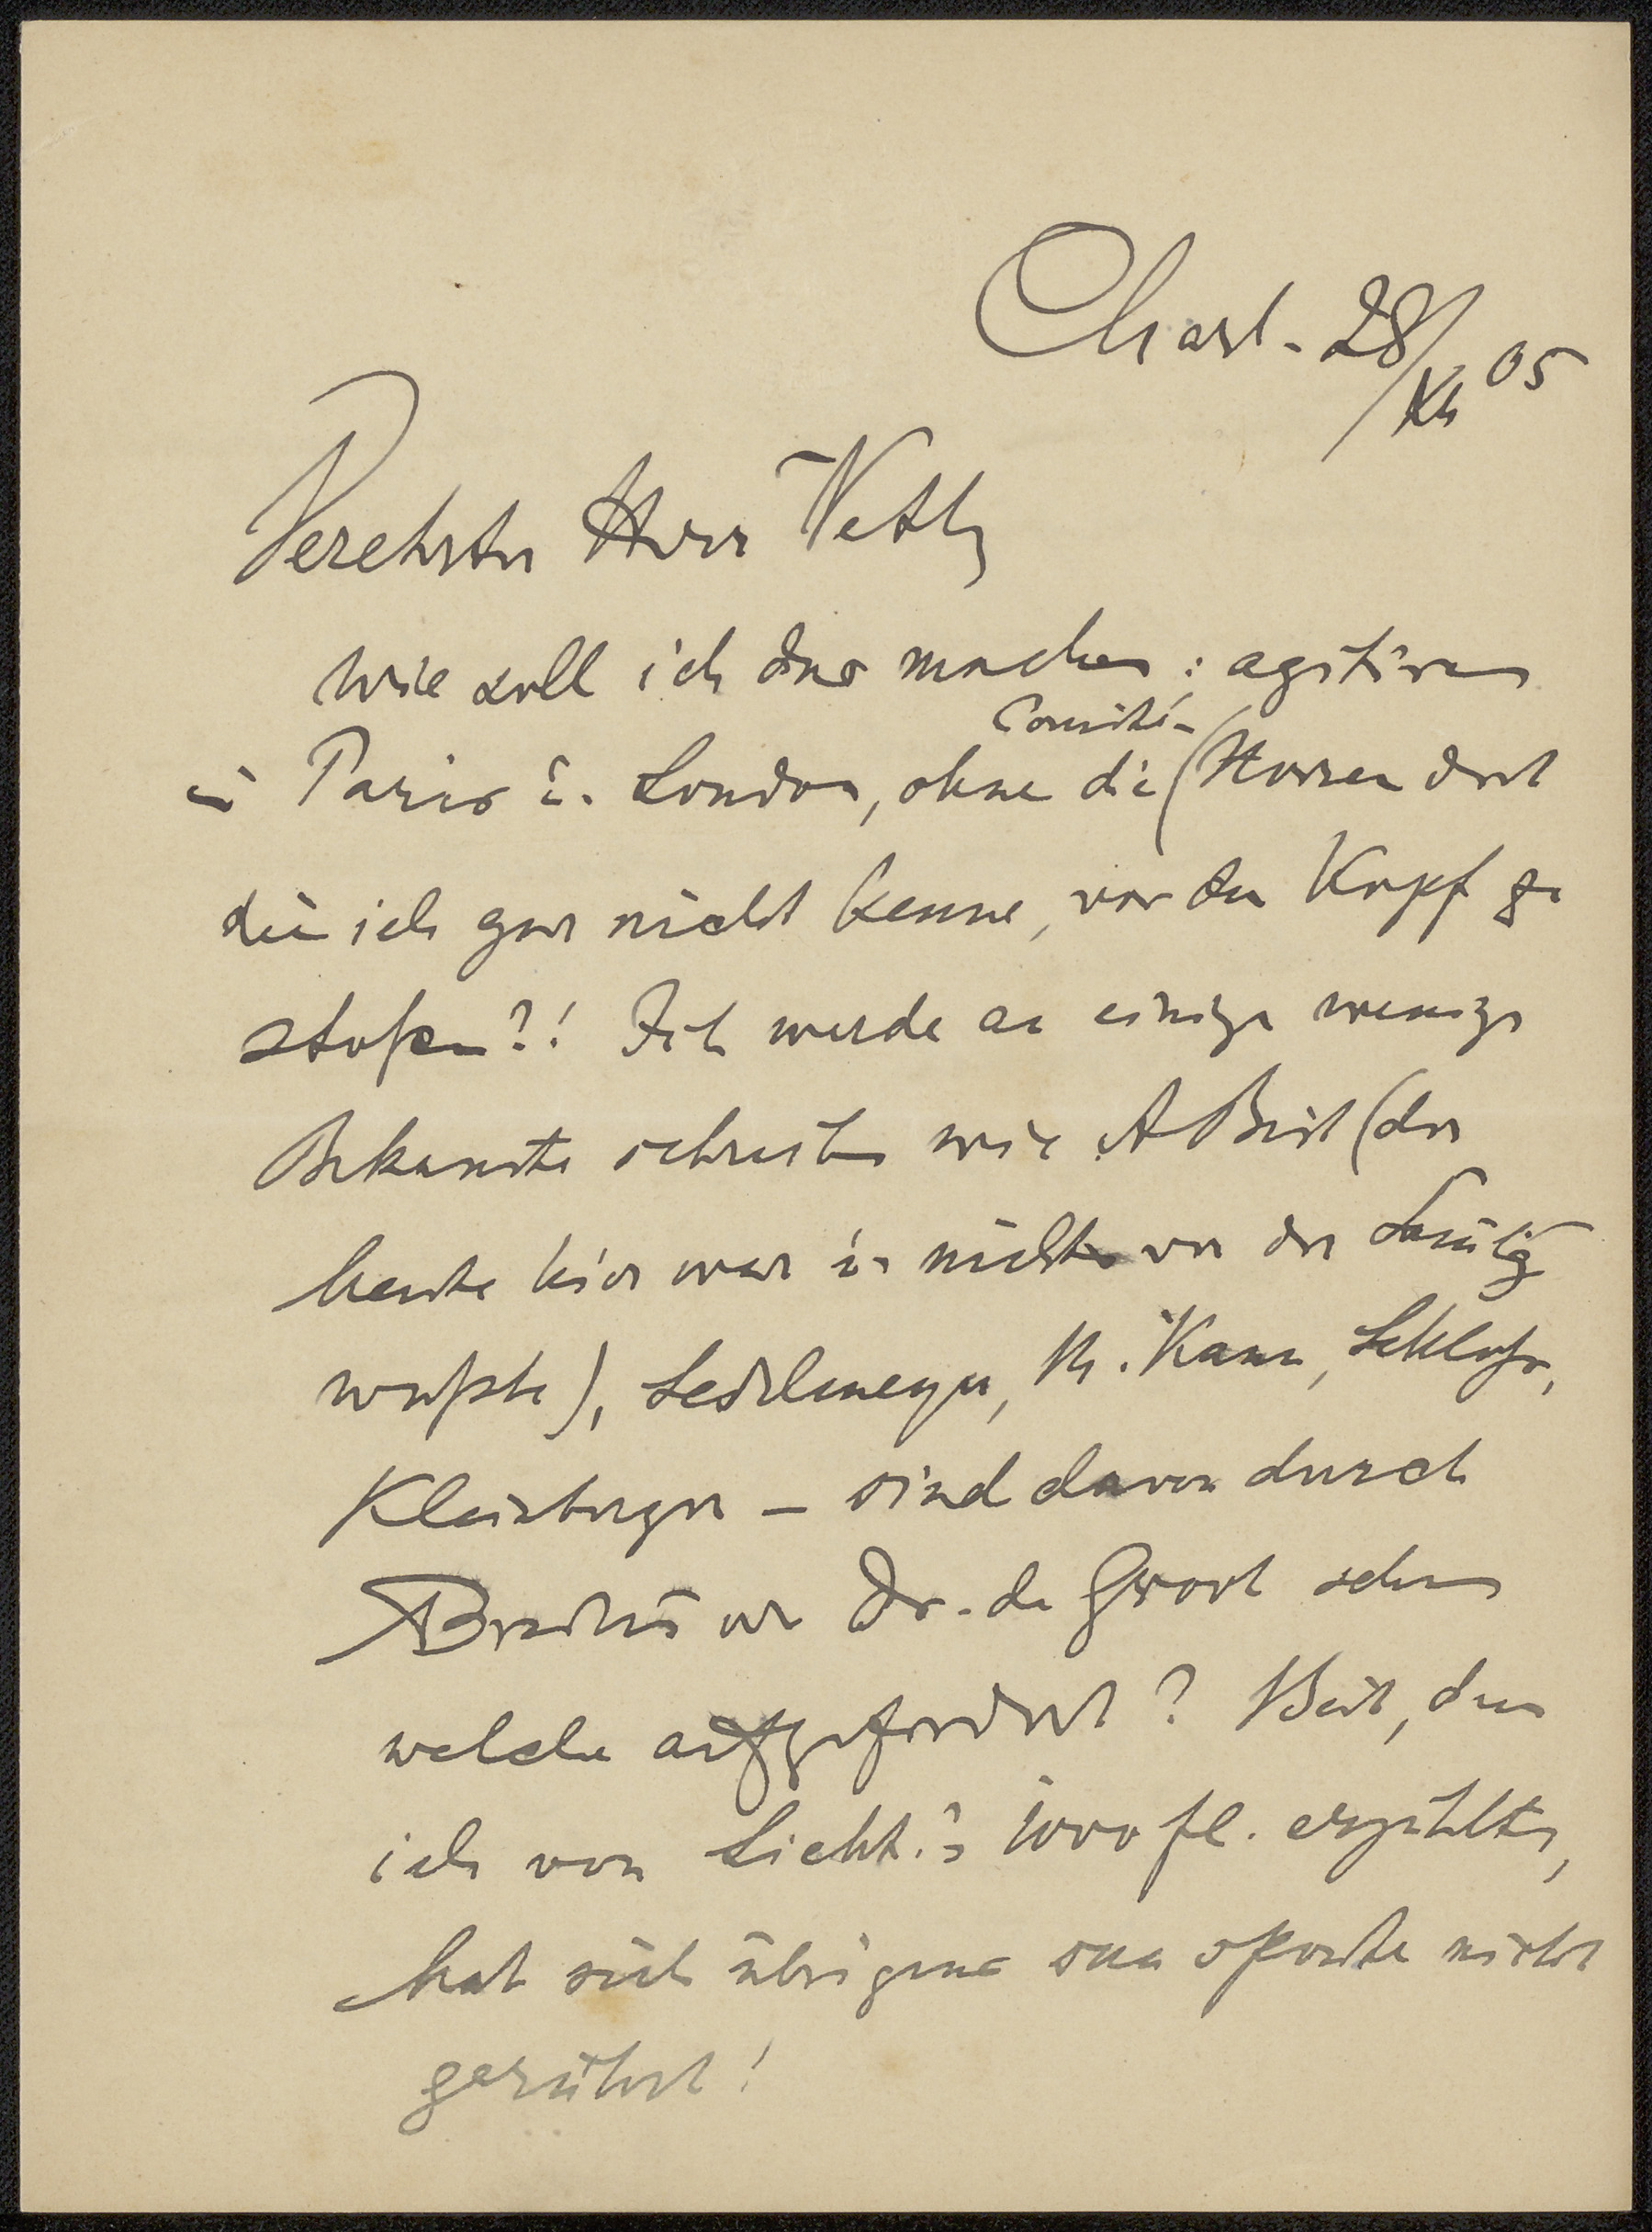 Charl. 28/XII 05
Verehrter Herr Veth,
Wie soll ich das machen: agitiren
Comité-
in Paris u. London, ohne die (Herren dort
die ich gar nicht kenne, vor den Kopf zu
stoßen?! Ich werde an einige wenige
Bekannte schreiben wie A Beit (der
heute hier war u. nichts von der
wußte), Sedelmeyer, M. Kann, Schloss,
Kleinberger – sind davon durch
Bredius or Dr. de Groot schon
welche aufgefordert? Beit, dem
ich von Licht.'s 1000 fl. erzählte,
hat sich übrigens sua sponte nicht
gerührt!